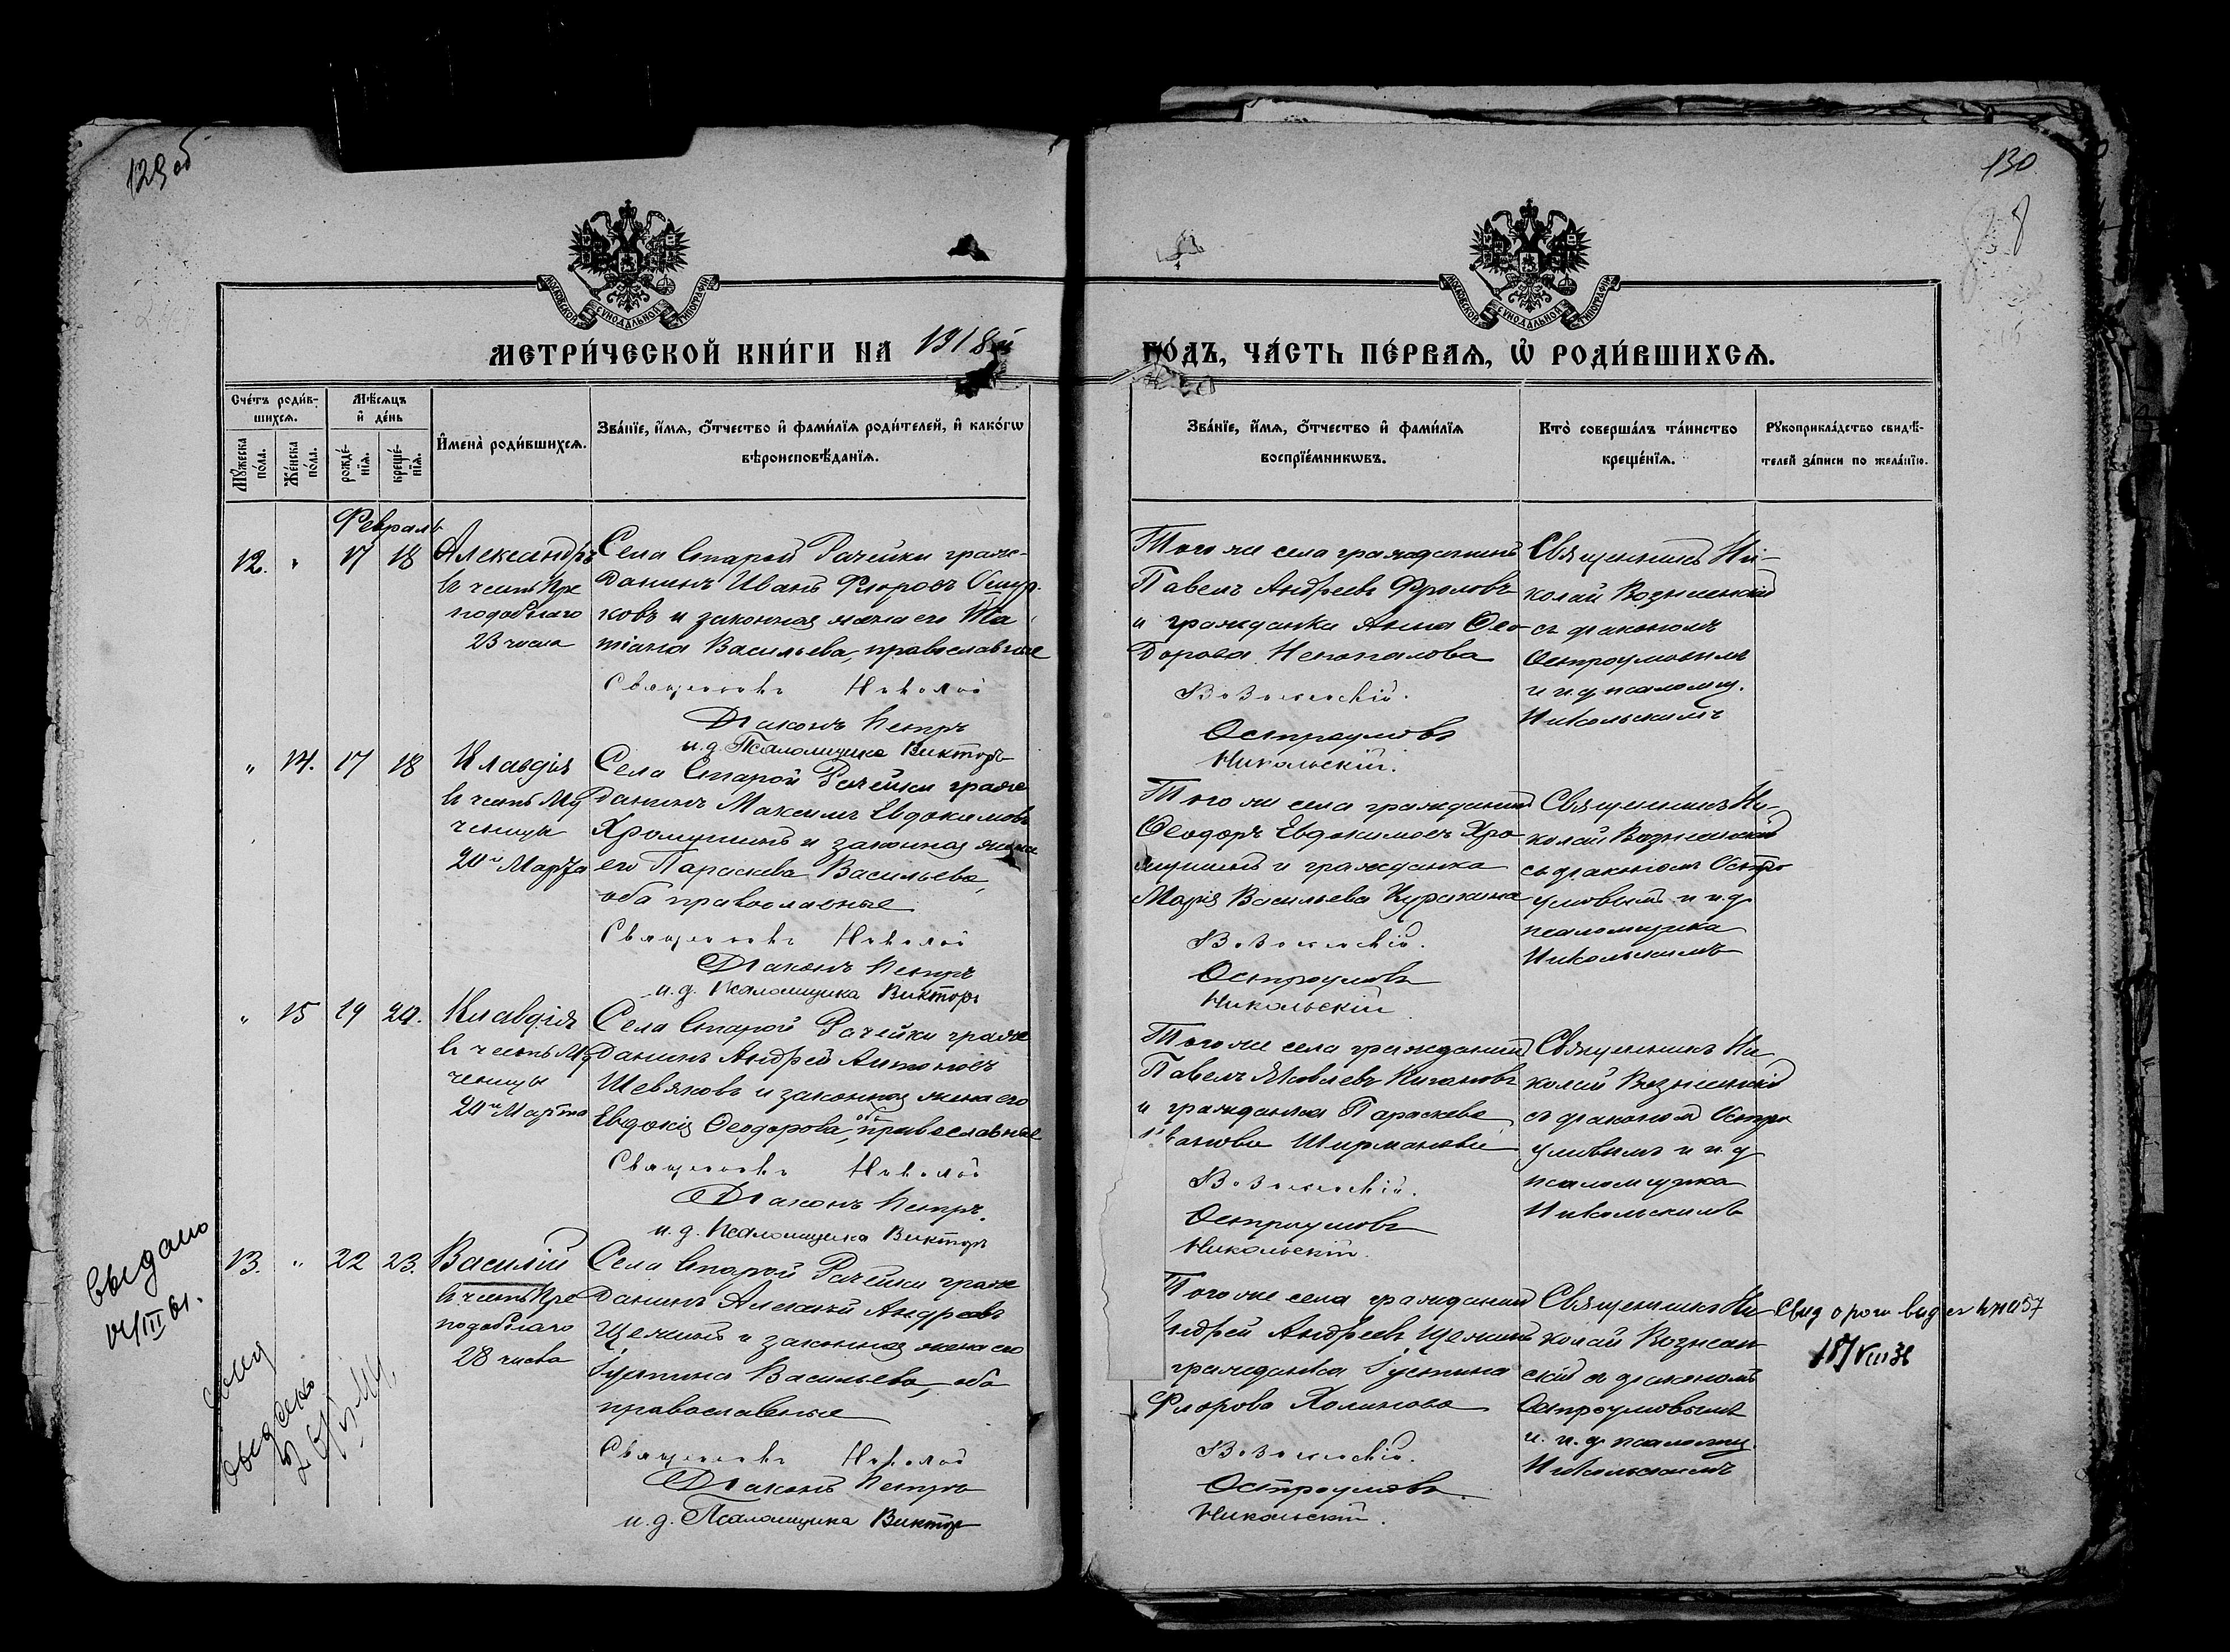 129 об
130
МОСКОВСКОЙ СѴНОДАЛЬНОЙ ТИПОГРАФІИ
МОСКОВСКОЙ СѴНОДАЛЬНОЙ ТИПОГРАФІИ
МЕТРИ́ЧЕСКОЙ КНИ́ГИ НА 1918й
ГО́ДЪ, ЧА́СТЬ ПЕ́РВАѦ, Ѡ РОДИ́ВШИХСѦ.
Сче́тъ роди́в-
шихсѧ.
Мѣ́сѧцъ
и де́нь
Мꙋжеска по́ла.
Же́нска по́ла.
рожде́-
нїѧ.
креще́-
нїѧ.
И҆мена̀ роди́вшихсѧ.
Зва́нїе, и҆́мѧ, ѻ҆́тчество и҆ фами́лїѧ роди́телей, и҆ како́гѡ
вѣроисповѣ́данїѧ.
Зва́нїе, и҆́мѧ, ѻ҆́тчество и҆ фами́лїѧ
воспрїе́мникѡвъ.
Кто̀ соверша́лъ та́инство
креще́нїѧ.
Рꙋкоприкла́дство свидѣ́-
телей за́писи по жела́нїю.
Февраль
12. " 17 18
Александръ
въ честь Пре
подобнаго
23 числа
Села Старой Рачейки граж-
данинъ Иванъ Флоровъ
ковъ и законная жена его Та
тіана Васильева, православные
Священникъ Николай
Діаконъ Петръ
и.д. Псаломщика Викторъ
Того же села гражданинъ
Павелъ Андреевъ Фроловъ
и гражданка Анна Ѳео
дорова Непопалова
Вознесенскій.
Остроумовъ
Никольскій.
Священникъ Ни-
колай Вознесенскій
съ діакономъ
Остроумовымъ
и и.д. псаломщ.
Никольскимъ
" 14. 17 18
Клавдія
въ честь Му
ченицы
20го Марта
Села Старой Рачейки граж
данинъ Максимъ Евдокимовъ
Хромушинъ и законная жена
его Параскева Васильева,
оба православные
Священникъ Николай
Діаконъ Петръ
и.д. Псаломщика Викторъ
Того же села гражданинъ
Ѳеодоръ Евдокимовъ Хро
мушинъ и гражданка
Марія Васильева Куракина
Вознесенскій.
Остроумовъ
Никольскій
Священникъ Ни-
колай Вознесенскій
съ діакономъ Остро
умовымъ и и.д.
псаломщика
Никольскимъ
" 15 19 20.
Клавдія
въ честь Му
ченицы
20го Марта
Села Старой Рачейки граж
данинъ Андрей Антоновъ
Шевяковъ и законная жена его
Евдокія Ѳеодорова, оба православные
Священникъ Николай
Діаконъ Петръ.
и.д. Псаломщика Викторъ
Того же села гражданинъ
Павелъ Яковлевъ
и гражданка Параскева
Ширманова
Вознесенскій.
Остроумовъ
Никольскій.
Священникъ Ни
колай Вознесенскій
съ діакономъ Остро
умовымъ и и.д.
псаломщика
Никольскимъ
13. " 22 23.
Василій
въ честь Пре
подобнаго
28 числа
Села Старой Рачейки граж
данинъ Алексѣй Андреевъ
и законная жена его
Іустина Васильева, оба
православные
Священникъ Николай
Діаконъ Петръ
и.д. Псаломщика Викторъ
Того же села гражданинъ
Андрей Андреевъ
гражданка Іустина
Флорова
Вознесенскій.
Остроумовъ.
Никольскій.
Священникъ Ни
колай Вознесен
скій съ діакономъ
Остроумовымъ
и и.д. псаломщ.
Никольскимъ
Выдано
III 61.